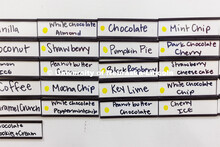 White Chocolate
Almond
Chocolate
Mint Chip
Strawberry
Pumpkin Pie
Dark Chocolate
Cherry
ICE
Peanut butter
Black Raspberry
Strawberry
cheesecake
Coffee
Mocha Chip
Key Lime
White Chocolate
Chip
Caramel Crunch
White Chocolate
Peppermint chip
Peanut butter
Chocolate
Cherry
ICE
Chocolate